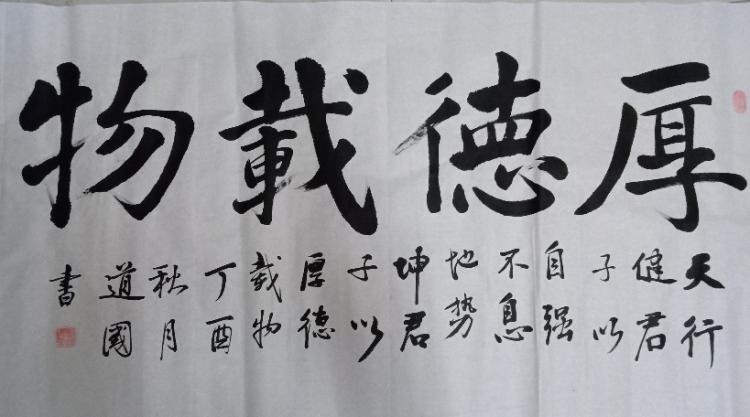 厚德載物
天行
健君
子以
自强
不息
地势
坤君
子以
厚德
载物
丁酉
秋月
道國
書